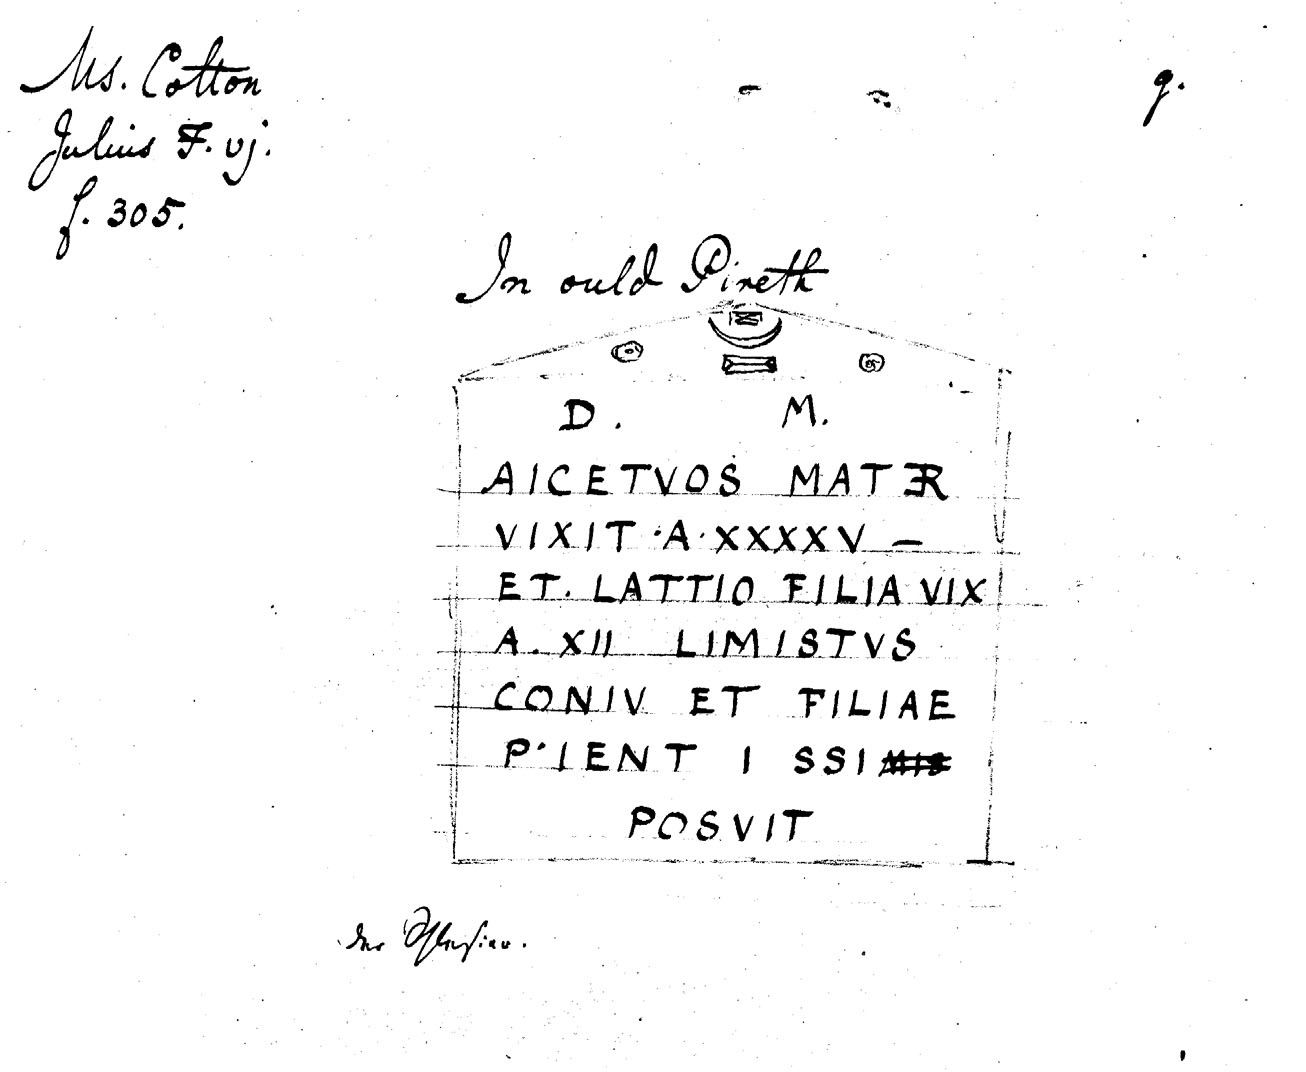 Ms. Cotton
Julius F. vj.
f. 305.
9.
In ould Pireth
D. M.
AICETVOS MATER
VIXIT · A · XXXXV –
ET. LATTIO FILIA VIX
A. XII LIMISTVS
CONIV ET FILIAE
P·IENT I SSI
POSVIT